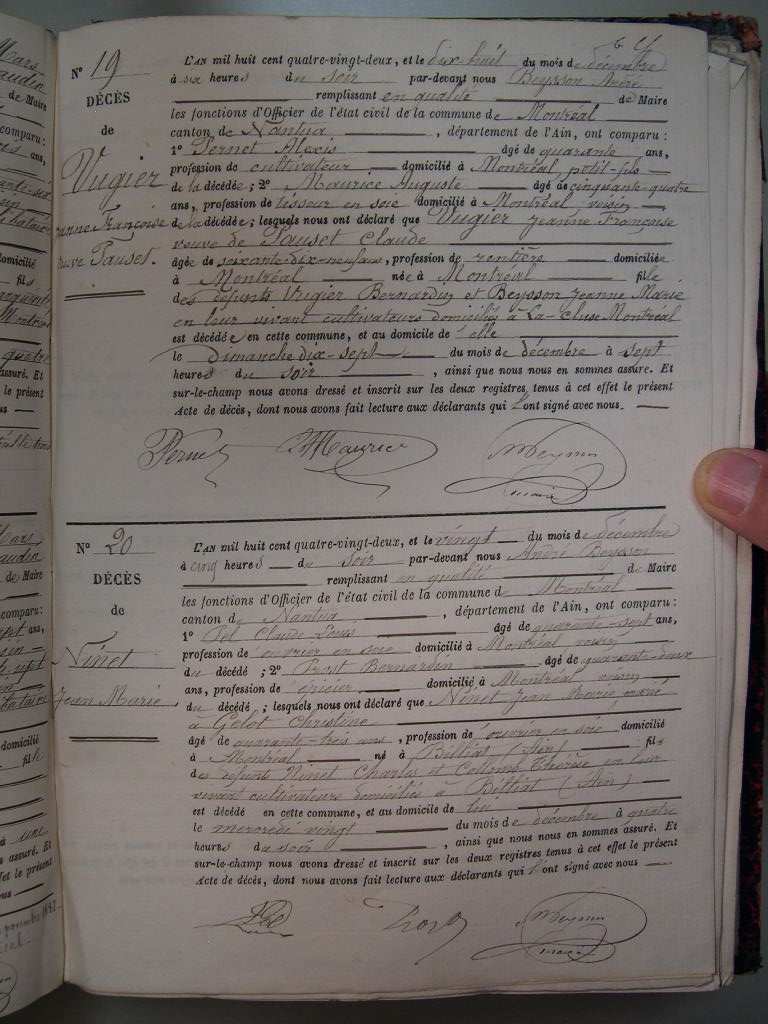 N° 19
DÉCÈS
de
Vugier
Jeanne Françoise
veuve Pauset.
L'AN mil huit cent quatre-vingt-deux, et le dix huit du mois de décembre
à six heures du soir par-devant nous Beysson André
remplissant en qualité de Maire
les fonctions d'Officier de l'état civil de la commune de Montréal
canton de Nantua, département de l'Ain, ont comparu :
1° Pernet Alexis âgé de quarante ans,
profession de cultivateur domicilié à Montréal petit-fils
de la décédée ; 2° Maurice Auguste âgé de cinquante-quatre
ans, profession de tisseur en soie domicilié à Montréal voisin
de la décédée ; lesquels nous ont déclaré que Vugier Jeanne Françoise
veuve de Pauset Claude
âgée de soixante-dix-neuf ans, profession de rentière domiciliée
à Montréal née à Montréal fille
des défunts Vugier Bernardin et Beysson Jeanne Marie
en leur vivant cultivateurs domiciliés à La-Cluse Montréal
est décédée en cette commune, et au domicile de elle
le Dimanche dix-sept du mois de décembre à sept
heures du soir, ainsi que nous nous en sommes assuré. Et
sur-le-champ nous avons dressé et inscrit sur les deux registres tenus à cet effet le présent
Acte de décès, dont nous avons fait lecture aux déclarants qui l'ont signé avec nous.
Pernet Maurice Beysson
maire
N° 20
DÉCÈS
de
Ninet
Jean Marie
L'AN mil huit cent quatre-vingt-deux, et le vingt du mois de décembre
à cinq heures du soir par-devant nous André Beysson
remplissant en qualité de Maire
les fonctions d'Officier de l'état civil de la commune de Montréal
canton de Nantua, département de l'Ain, ont comparu :
1° Pel Claude Louis âgé de quarante-sept ans,
profession de ouvrier en soie domicilié à Montréal voisin
du décédé ; 2° Prost Bernardin âgé de quarante-deux
ans, profession de épicier domicilié à Montréal voisin
du décédé ; lesquels nous ont déclaré que Ninet Jean Marie marié
à Gelot Christine
âgé de quarante-trois ans, profession de ouvrier en soie domicilié
à Montréal né à Billiat (Ain) fils
des défunts Ninet Charles et Collomb Thérèse en leur
vivant cultivateurs domiciliés à Billiat (Ain)
est décédé en cette commune, et au domicile de lui
le mercredi vingt du mois de décembre à quatre
heures du soir, ainsi que nous nous en sommes assuré. Et
sur-le-champ nous avons dressé et inscrit sur les deux registres tenus à cet effet le présent
Acte de décès, dont nous avons fait lecture aux déclarants qui l'ont signé avec nous
Pel Prost Beysson
maire